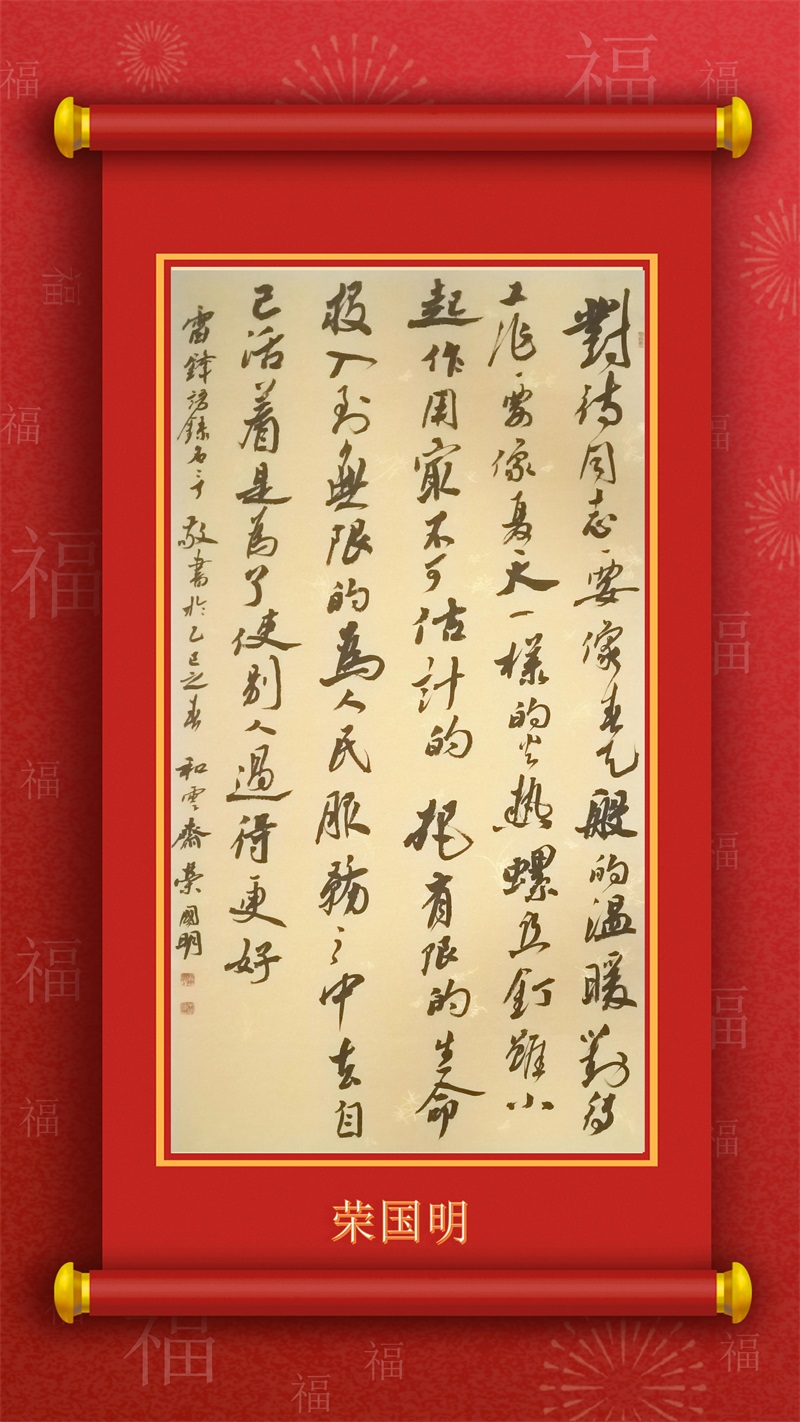 對待同志要像春天般的溫暖對待
工作要像夏天一樣的火熱螺丝釘雖小
起作用不可估計的把有限的生命
投入到無限的為人民服務之中去自
己活着是為了使別人過得更好
雷鋒語錄名言 敬書於乙巳之春 和雲齋榮國明
荣国明